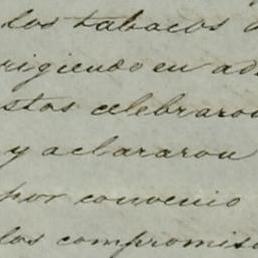 los tabacos
rigiendo en ad
stos celebraron
y aclararon
por convenio
los compromiso